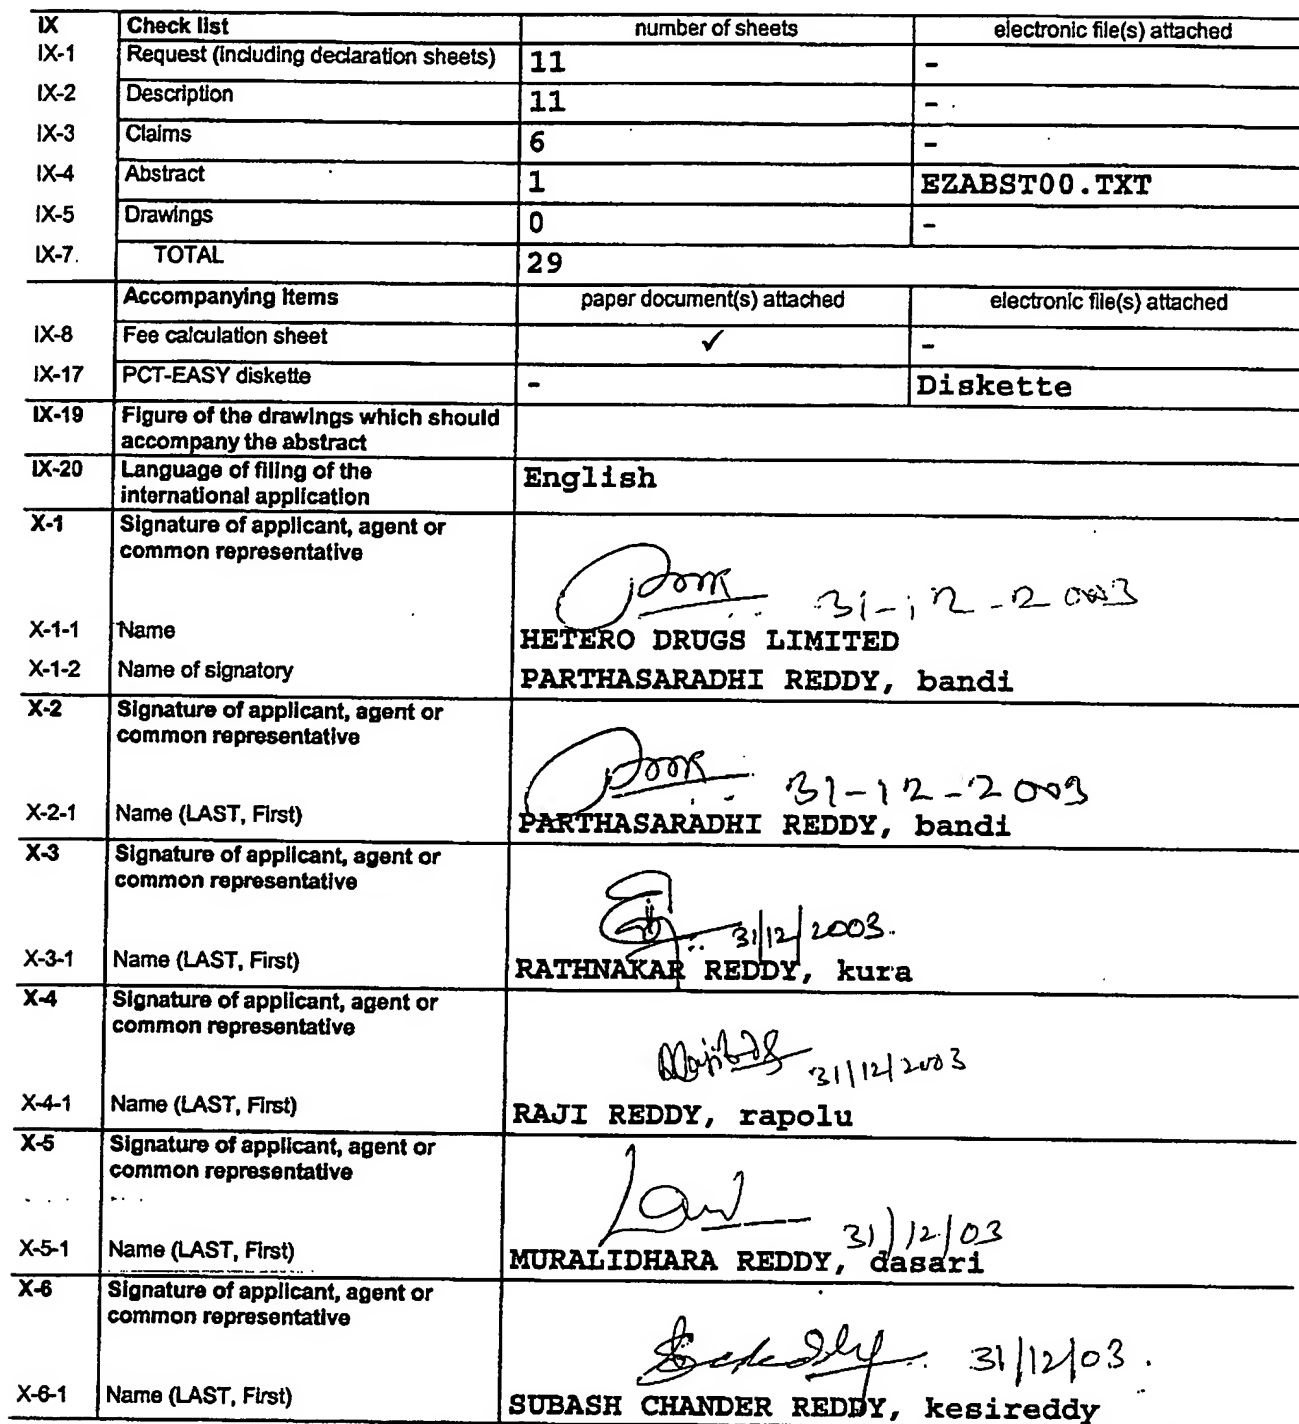 IX Check list number of sheets electronic file(s) attached
IX-1 Request (including declaration sheets) 11 -
IX-2 Description 11 -
IX-3 Claims 6 -
IX-4 Abstract 1 EZABST00.TXT
IX-5 Drawings 0 -
IX-7. TOTAL 29
Accompanying Items paper document(s) attached electronic file(s) attached
IX-8 Fee calculation sheet ✓ -
IX-17 PCT-EASY diskette - Diskette
IX-19 Figure of the drawings which should
accompany the abstract
IX-20 Language of filing of the English
international application
X-1 Signature of applicant, agent or
common representative
31-12-2003
X-1-1 Name HETERO DRUGS LIMITED
X-1-2 Name of signatory PARTHASARADHI REDDY, bandi
X-2 Signature of applicant, agent or
common representative
31-12-2003
X-2-1 Name (LAST, First) PARTHASARADHI REDDY, bandi
X-3 Signature of applicant, agent or
common representative
31/12/2003.
X-3-1 Name (LAST, First) RATHNAKAR REDDY, kura
X-4 Signature of applicant, agent or
common representative
31/12/2003
X-4-1 Name (LAST, First) RAJI REDDY, rapolu
X-5 Signature of applicant, agent or
common representative
31/12/03
X-5-1 Name (LAST, First) MURALIDHARA REDDY, dasari
X-6 Signature of applicant, agent or
common representative
31/12/03.
X-6-1 Name (LAST, First) SUBASH CHANDER REDDY, kesireddy